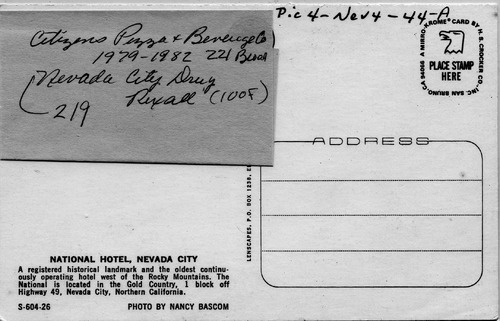 Pic 4-Nev4-44-A
Citizens Pizza & Beverage Co
1979-1982 221 Broad
Nevada City Drug
Rexall (IOOF)
219
A MIRRO-KROME® CARD BY H. S. CROCKER CO., INC. SAN BRUNO, CA 94066
PLACE STAMP
HERE
ADDRESS
LENSCAPES, P.O. BOX 1238,
NATIONAL HOTEL, NEVADA CITY
A registered historical landmark and the oldest continu-
ously operating hotel west of the Rocky Mountains. The
National is located in the Gold Country, 1 block off
Highway 49, Nevada City, Northern California.
S-604-26 PHOTO BY NANCY BASCOM